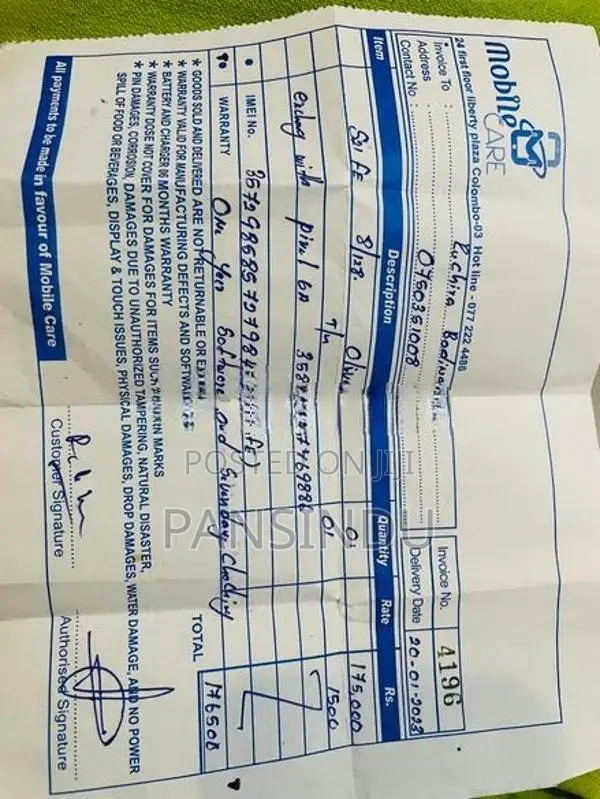 Mobile
CARE
24 first floor liberty plaza Colombo-03 Hot line - 077 222 4486
Invoice To : Ruchira
Address
Contact No : 0750351008
Invoice No. 4196
Delivery Date 20-01-2023
Item Description Quantity Rate Rs.
S21 FE 8/128 01 175,000
with 6a 01 1500
IMEI No.
WARRANTY One Year Software and
TOTAL 176500
* GOODS SOLD AND DELIVERED ARE NOT RETURNABLE OR
* WARRANTY VALID FOR MANUFACTURING DEFECTS AND SOFTWARE
* BATTERY AND CHARGER 06 MONTHS WARRANTY
* WARRANTY DOSE NOT COVER FOR DAMAGES FOR ITEMS SUCH MARKS
* PIN DAMAGES, CORROSION, DAMAGES DUE TO UNAUTHORIZED TAMPERING, NATURAL DISASTER,
SPILL OF FOOD OR BEVERAGES, DISPLAY & TOUCH ISSUES, PHYSICAL DAMAGES, DROP DAMAGES, WATER DAMAGE, AND NO POWER
Customer Signature
Authorised Signature
All payments to be made in favour of Mobile Care
POSTED ON JIJI
PANSINDU